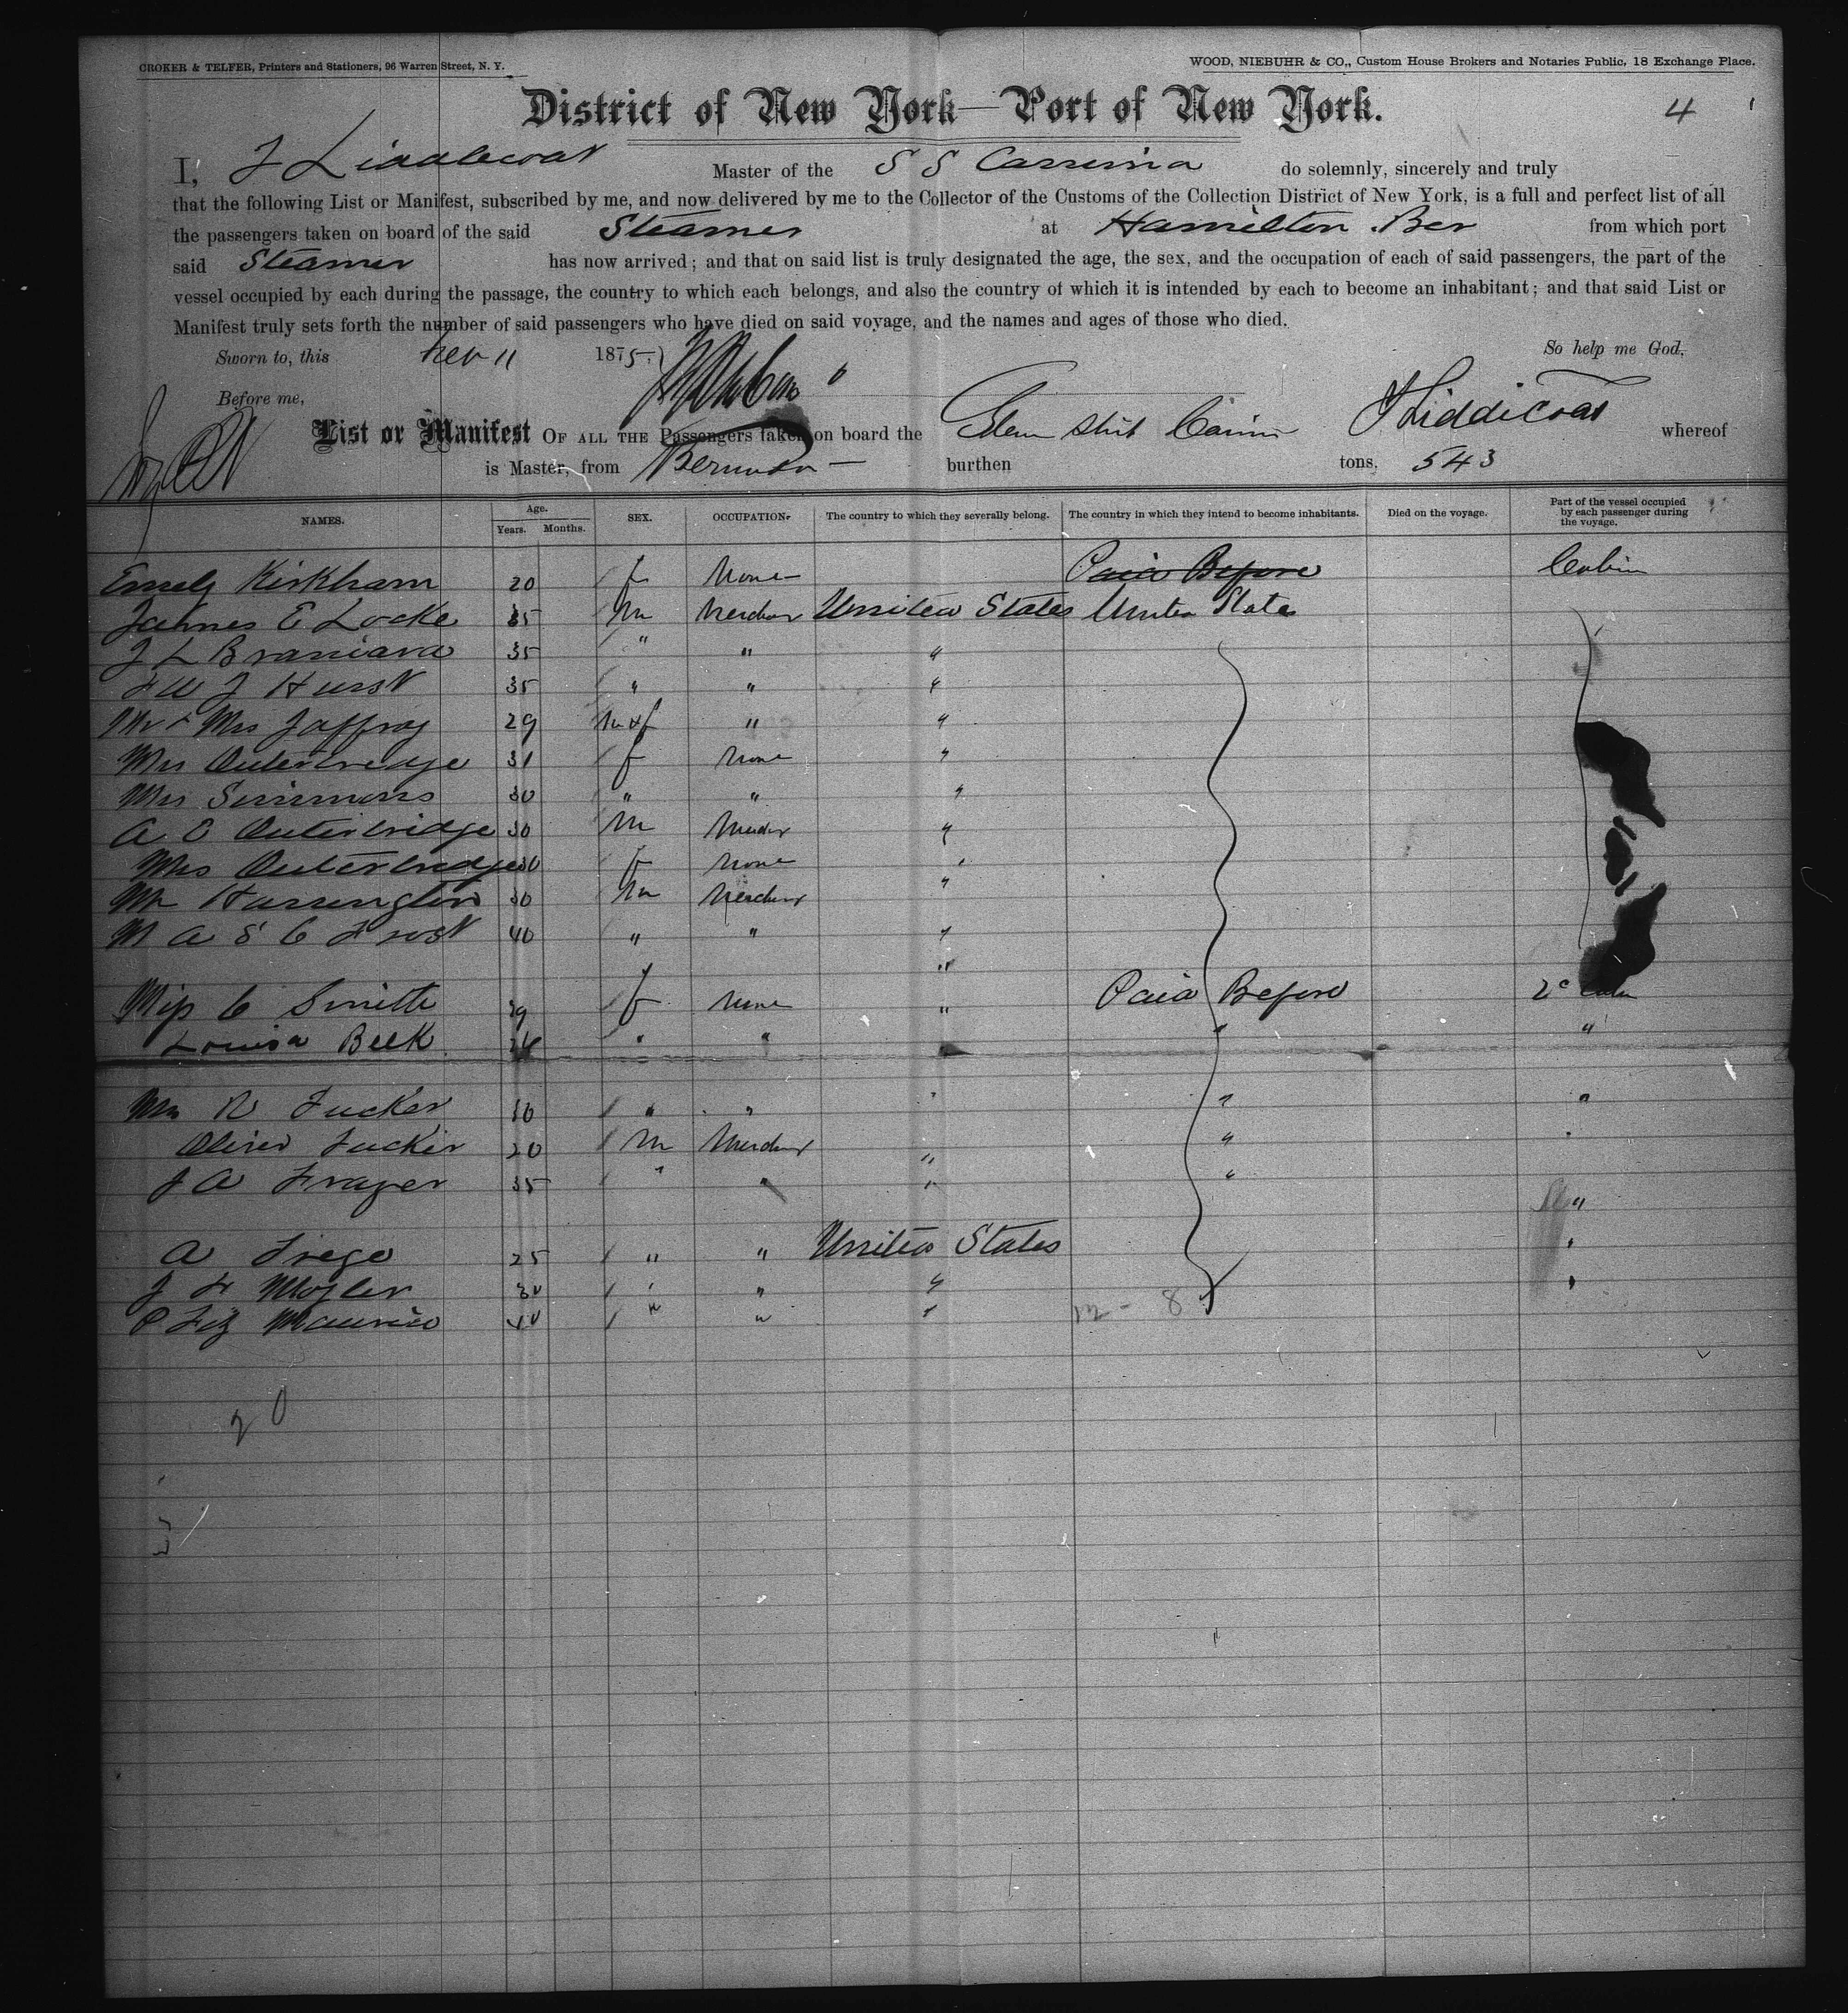 CROKER & TELFER, Printers and Stationers, 96 Warren Street, N. Y.
WOOD, NIEBUHR & CO., Custom House Brokers and Notaries Public, 18 Exchange Place.
District of New York—Port of New York.
4
I, J Liddicoat Master of the S S Canima do solemnly, sincerely and truly
that the following List or Manifest, subscribed by me, and now delivered by me to the Collector of the Customs of the Collection District of New York, is a full and perfect list of all
the passengers taken on board of the said Steamer at Hamilton Ber from which port
said Steamer has now arrived; and that on said list is truly designated the age, the sex, and the occupation of each of said passengers, the part of the
vessel occupied by each during the passage, the country to which each belongs, and also the country of which it is intended by each to become an inhabitant; and that said List or
Manifest truly sets forth the number of said passengers who have died on said voyage, and the names and ages of those who died.
Sworn to, this 11 1875 So help me God,
Before me,
J Liddicoat
List or Manifest OF ALL THE Passengers taken on board the whereof
is Master, from Bermuda burthen tons. 543
NAMES. Age. Years. Months. SEX. OCCUPATION. The country to which they severally belong. The country in which they intend to become inhabitants. Died on the voyage. Part of the vessel occupied by each passenger during the voyage.
Emely Kirkham 20 f None Paid Before Cabin
James E Locke 35 m Merchant United States United States
J L Brainard 35 " " "
Hurst 35 " " "
Mr & Mrs Jaffray 29 m & f " "
Mrs Outerbridge 31 f None "
Mrs Simmons 30 " " "
A E Outerbridge 30 m "
Mrs Outerbridge 30 f None "
Mr Harrington 30 m Merchant "
M A S C Frost 40 " " "
Miss C Smith 29 f None " Paid Before 2d Cabin
Louisa Beek " " " "
R Tucker 30 " " " " "
Oliver Tucker 20 m Merchant " " "
J A Frazer 35 " " " " "
A Trego 25 " " United States "
J H Mosler 30 " " " "
P Fitz Maurice 40 " " "
12 - 8
20